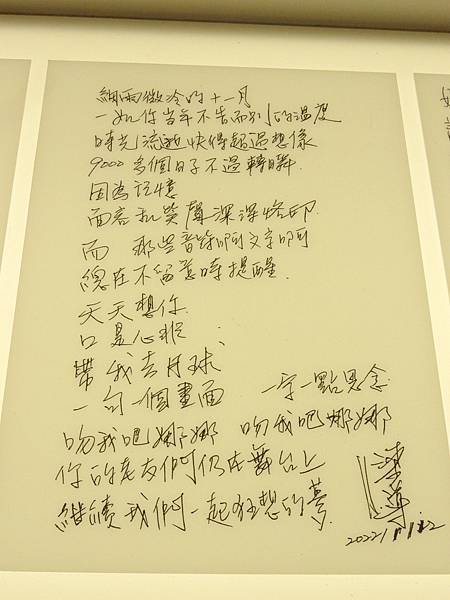 細雨微冷的十一月
一如你當年不告而別的溫度
時光流逝快得超過想像
9000多個日子不過轉瞬
因為記憶
面容和笑聲深深烙印
而 那些音符啊文字啊
總在不留意時提醒
天天想你
口是心非
帶我去月球
一句一個畫面 一字一點思念
吻我吧娜娜 吻我吧娜娜
你的老友們仍在舞台上
繼續我們一起狂想的夢
陳
2022/11/12